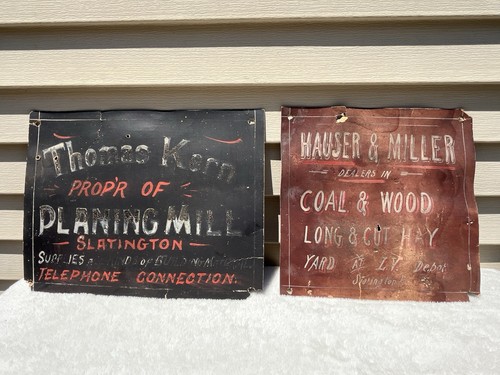 Thomas Kern
PROP'R OF
PLANING MILL
SLATINGTON
SUPPLIES ALL KINDS OF BUILDING
TELEPHONE CONNECTION.
HAUSER & MILLER
DEALERS IN
COAL & WOOD
LONG & CUT HAY
YARD AT L.V. Depot